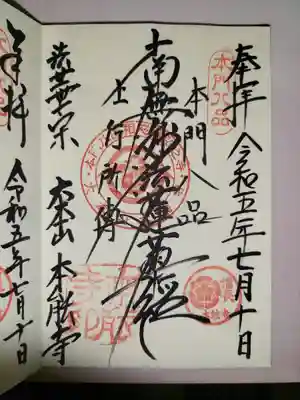 奉拝 令和五年七月十日
本門八品
本門八品
南無妙法蓮華経
上行所傳
法華宗 大本山 本能寺
奉拝 令和五年七月十日